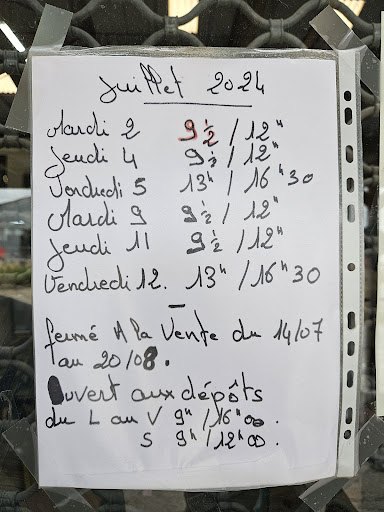 Juillet 2024
Mardi 2 9 1/2 / 12h
Jeudi 4 9 1/2 / 12h
Vendredi 5 13h / 16h30
Mardi 9 9 1/2 / 12h
Jeudi 11 9 1/2 / 12h
Vendredi 12. 13h / 16h30
fermé A la Vente du 14/07
au 20/08.
Ouvert aux dépôts
du L au V 9h / 16h00.
S 9h / 12h00.